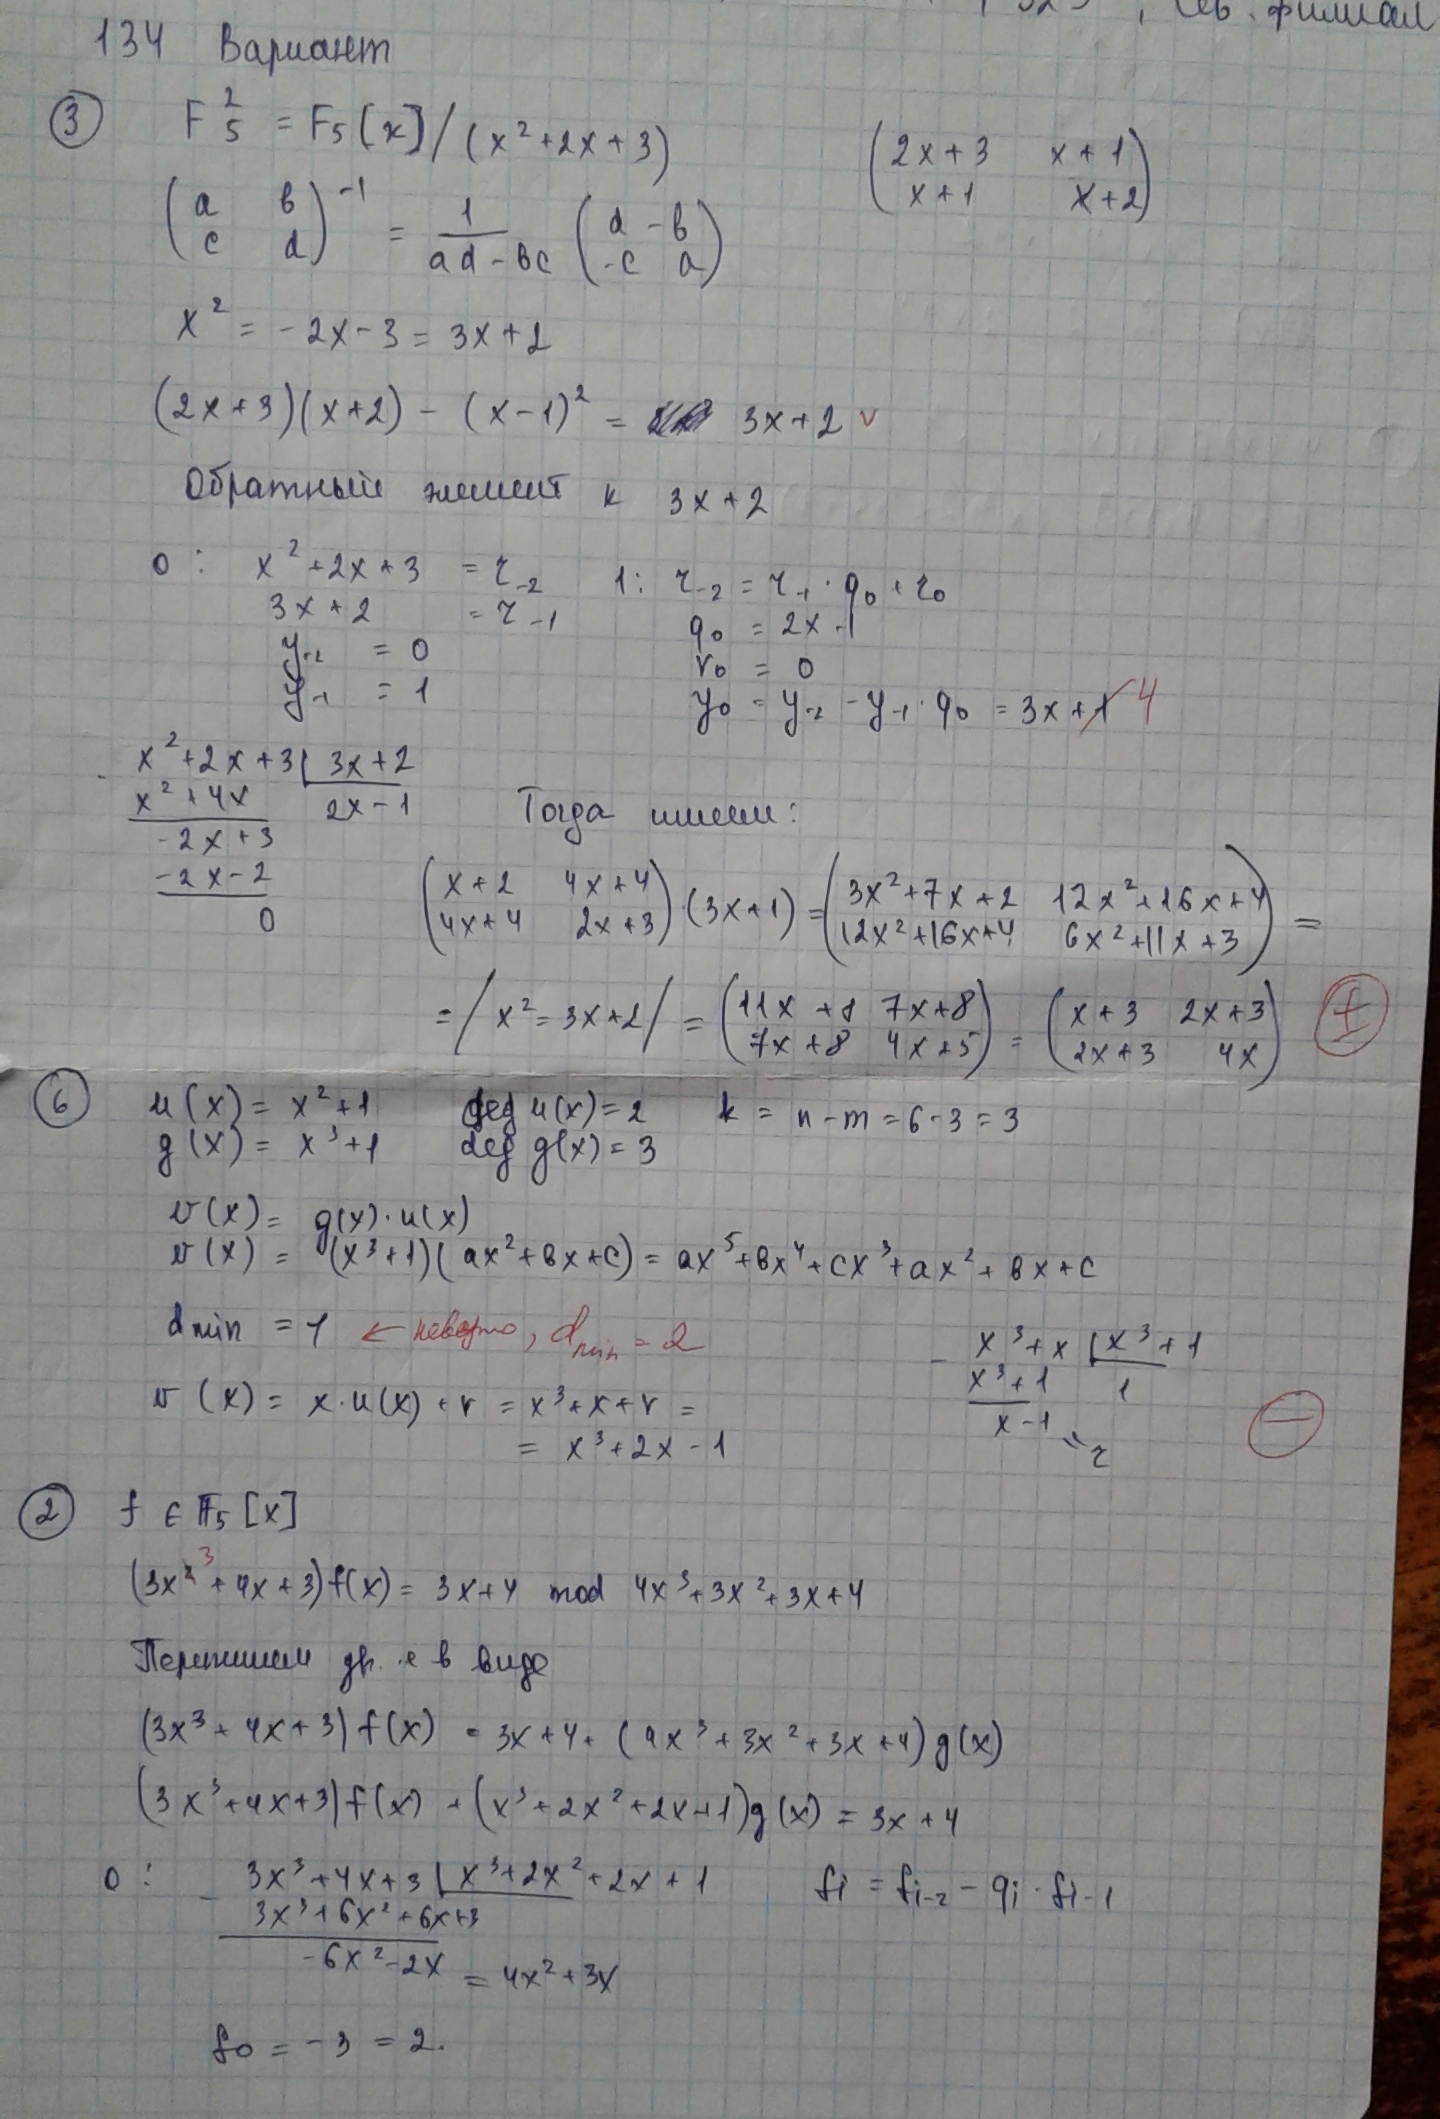 , Сев. филиал
134 Вариант
③ F₅² = F₅[x]/(x²+2x+3)
(2x+3 x+1)
(x+1 x+2)
(a b)⁻¹ = 1/(ad-bc) (d -b)
(c d) (-c a)
x² = -2x-3 = 3x+2
(2x+3)(x+2) - (x-1)² = 3x+2 v
Обратный элемент к 3x+2
0: x²+2x+3 = r₋₂
3x+2 = r₋₁
y₋₂ = 0
y₋₁ = 1
1: r₋₂ = r₋₁·q₀ + r₀
q₀ = 2x-1
r₀ = 0
y₀ = y₋₂ - y₋₁·q₀ = 3x+1 4
x²+2x+3 | 3x+2
x²+4x 2x-1
-2x+3
-2x-2
0
Тогда имеем:
(x+2 4x+4)·(3x+1) = (3x²+7x+2 12x²+16x+4) =
(4x+4 2x+3) (12x²+16x+4 6x²+11x+3)
= / x² = 3x+2 / = (11x+8 7x+8) = (x+3 2x+3) ±
(7x+8 4x+5) (2x+3 4x)
⑥ u(x) = x²+1 deg u(x)=2 k = n-m = 6-3 = 3
g(x) = x³+1 deg g(x) = 3
v(x) = g(x)·u(x)
v(x) = (x³+1)(ax²+bx+c) = ax⁵+bx⁴+cx³+ax²+bx+c
dmin = 1 ← неверно, dmin = 2
v(x) = x·u(x)+r = x³+x+r =
= x³+2x-1
x³+x | x³+1
x³+1 1
x-1 = r
−
② f ∈ F₅[x]
(3x³+4x+3)f(x) = 3x+4 mod 4x³+3x²+3x+4
Перепишем ур-е в виде
(3x³+4x+3)f(x) = 3x+4+(4x³+3x²+3x+4)g(x)
(3x³+4x+3)f(x) + (x³+2x²+2x+1)g(x) = 3x+4
0: 3x³+4x+3 | x³+2x²+2x+1
3x³+6x²+6x+3
-6x²-2x = 4x²+3x
fi = fi-2 - qi·fi-1
f₀ = -3 = 2.